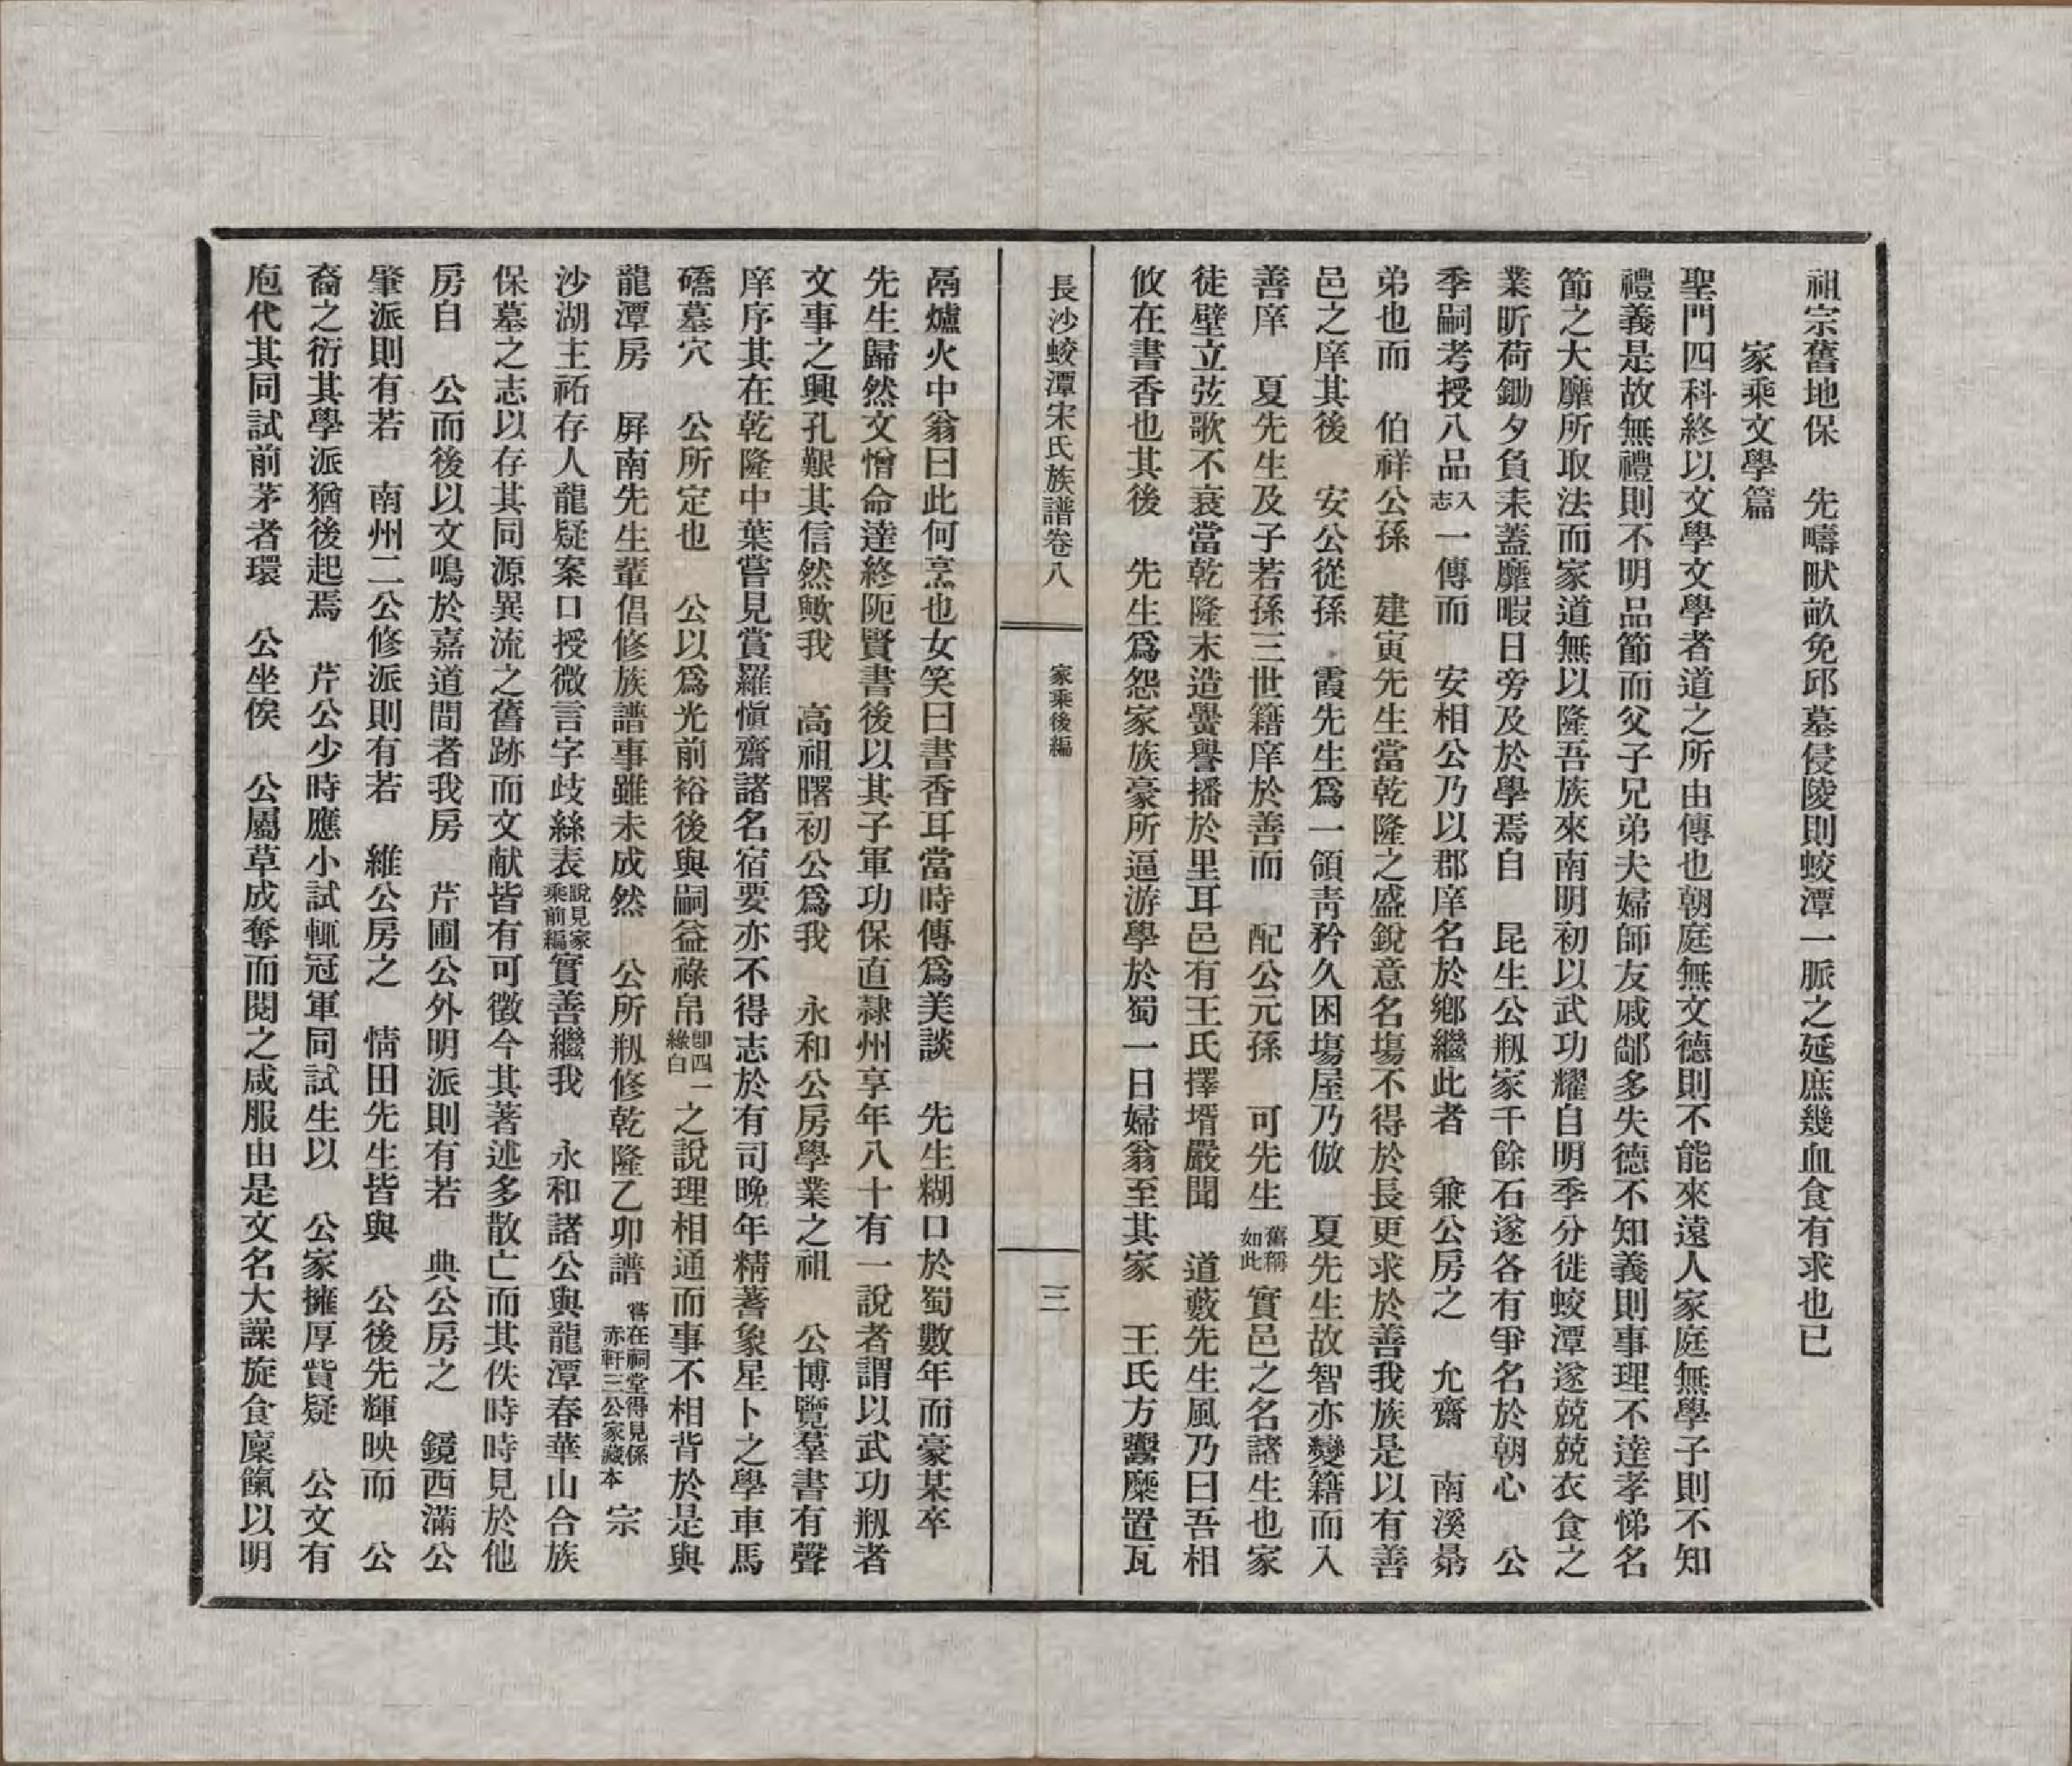 祖宗舊地保　先疇畎畝免邱墓侵陵則蛟潭一脈之延庶幾血食有求也已
家乘文學篇
聖門四科終以文學文學者道之所由傳也朝庭無文德則不能來遠人家庭無學子則不知
禮義是故無禮則不明品節而父子兄弟夫婦師友戚鄰多失德不知義則事理不達孝悌名
節之大靡所取法而家道無以隆吾族來南明初以武功耀自明季分徙蛟潭遂兢兢衣食之
業昕荷鋤夕負耒蓋靡暇日旁及於學焉自　昆生公剏家千餘石遂各有爭名於朝心　公
季嗣考授八品入志一傳而　安相公乃以郡庠名於鄉繼此者　兼公房之　允齋　南溪昴
弟也而　伯祥公孫　建寅先生當乾隆之盛銳意名場不得於長更求於善我族是以有善
邑之庠其後　安公從孫　霞先生爲一領靑衿久困塲屋乃倣　夏先生故智亦變籍而入
善庠　夏先生及子若孫三世籍庠於善而　配公元孫　可先生舊稱如此實邑之名諸生也家
徒壁立弦歌不衰當乾隆末造黌譽播於里耳邑有王氏擇壻嚴聞　道藪先生風乃曰吾相
攸在書香也其後　先生爲怨家族豪所逼游學於蜀一日婦翁至其家　王氏方饔糜置瓦
長沙蛟潭宋氏族譜卷八　家乘後編　三
鬲爐火中翁曰此何烹也女笑曰書香耳當時傳爲美談　先生糊口於蜀數年而豪某卒
先生歸然文憎命達終阨賢書後以其子軍功保直隸州享年八十有一說者謂以武功剏者
文事之興孔艱其信然歟我　高祖曙初公爲我　永和公房學業之祖　公博覽羣書有聲
庠序其在乾隆中葉嘗見賞羅愼齋諸名宿要亦不得志於有司晚年精蓍象星卜之學車馬
礄墓穴　公所定也　公以爲光前裕後與嗣益祿帛卽四綠白一之說理相通而事不相背於是與
龍潭房　屏南先生輩倡修族譜事雖未成然　公所剏修乾隆乙卯譜嘗在祠堂得見係赤軒三公家藏本宗
沙湖主祏存人龍疑案口授微言字歧絲表說見家乘前編實善繼我　永和諸公與龍潭春華山合族
保墓之志以存其同源異流之舊跡而文献皆有可徵今其著述多散亡而其佚時時見於他
房自　公而後以文鳴於嘉道間者我房　芹圃公外明派則有若　典公房之　鏡西滿公
肇派則有若　南州二公修派則有若　維公房之　情田先生皆與　公後先輝映而　公
裔之衍其學派猶後起焉　芹公少時應小試輒冠軍同試生以　公家擁厚貲疑　公文有
庖代其同試前茅者環　公坐俟　公屬草成奪而閱之咸服由是文名大譟旋食廩餼以明